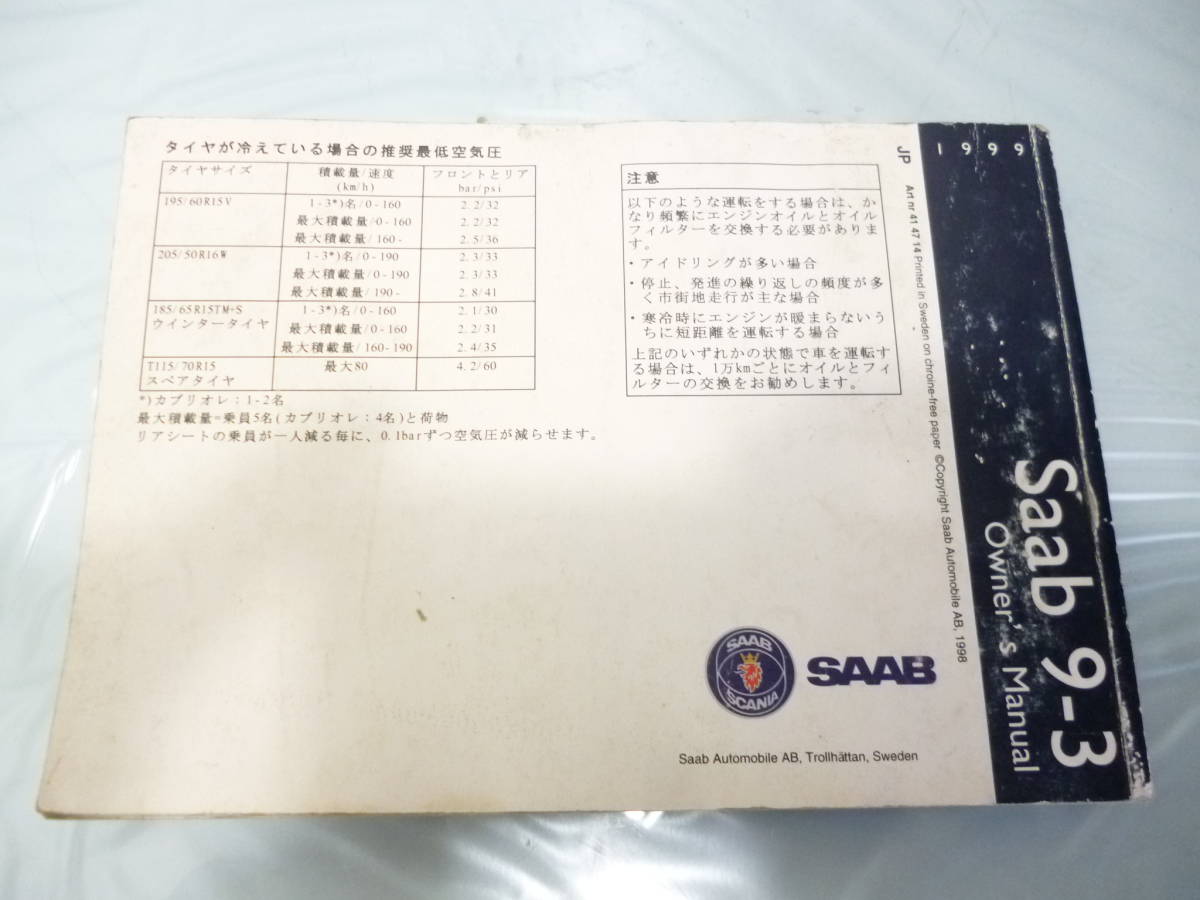 タイヤが冷えている場合の推奨最低空気圧
タイヤサイズ 積載量/速度 フロントとリア
(km/h) bar/psi
195/60R15V 1-3*)名/0-160 2.2/32
最大積載量/0-160 2.2/32
最大積載量/160- 2.5/36
205/50R16W 1-3*)名/0-190 2.3/33
最大積載量/0-190 2.3/33
最大積載量/190- 2.8/41
185/65R15TM+S 1-3*)名/0-160 2.1/30
ウインタータイヤ 最大積載量/0-160 2.2/31
最大積載量/160-190 2.4/35
T115/70R15 最大80 4.2/60
スペアタイヤ
*)カブリオレ:1-2名
最大積載量=乗員5名(カブリオレ:4名)と荷物
リアシートの乗員が一人減る毎に、0.1barずつ空気圧が減らせます。
注意
以下のような運転をする場合は、か
なり頻繁にエンジンオイルとオイル
フィルターを交換する必要がありま
す。
・アイドリングが多い場合
・停止、発進の繰り返しの頻度が多
く市街地走行が主な場合
・寒冷時にエンジンが暖まらないう
ちに短距離を運転する場合
上記のいずれかの状態で車を運転す
る場合は、1万kmごとにオイルとフィ
ルターの交換をお勧めします。
SAAB
SCANIA
SAAB
Saab Automobile AB, Trollhättan, Sweden
JP Art nr 41 47 14 Printed in Sweden on chroine-free paper ©Copyright Saab Automobile AB, 1998
1999
Saab 9-3
Owner's Manual